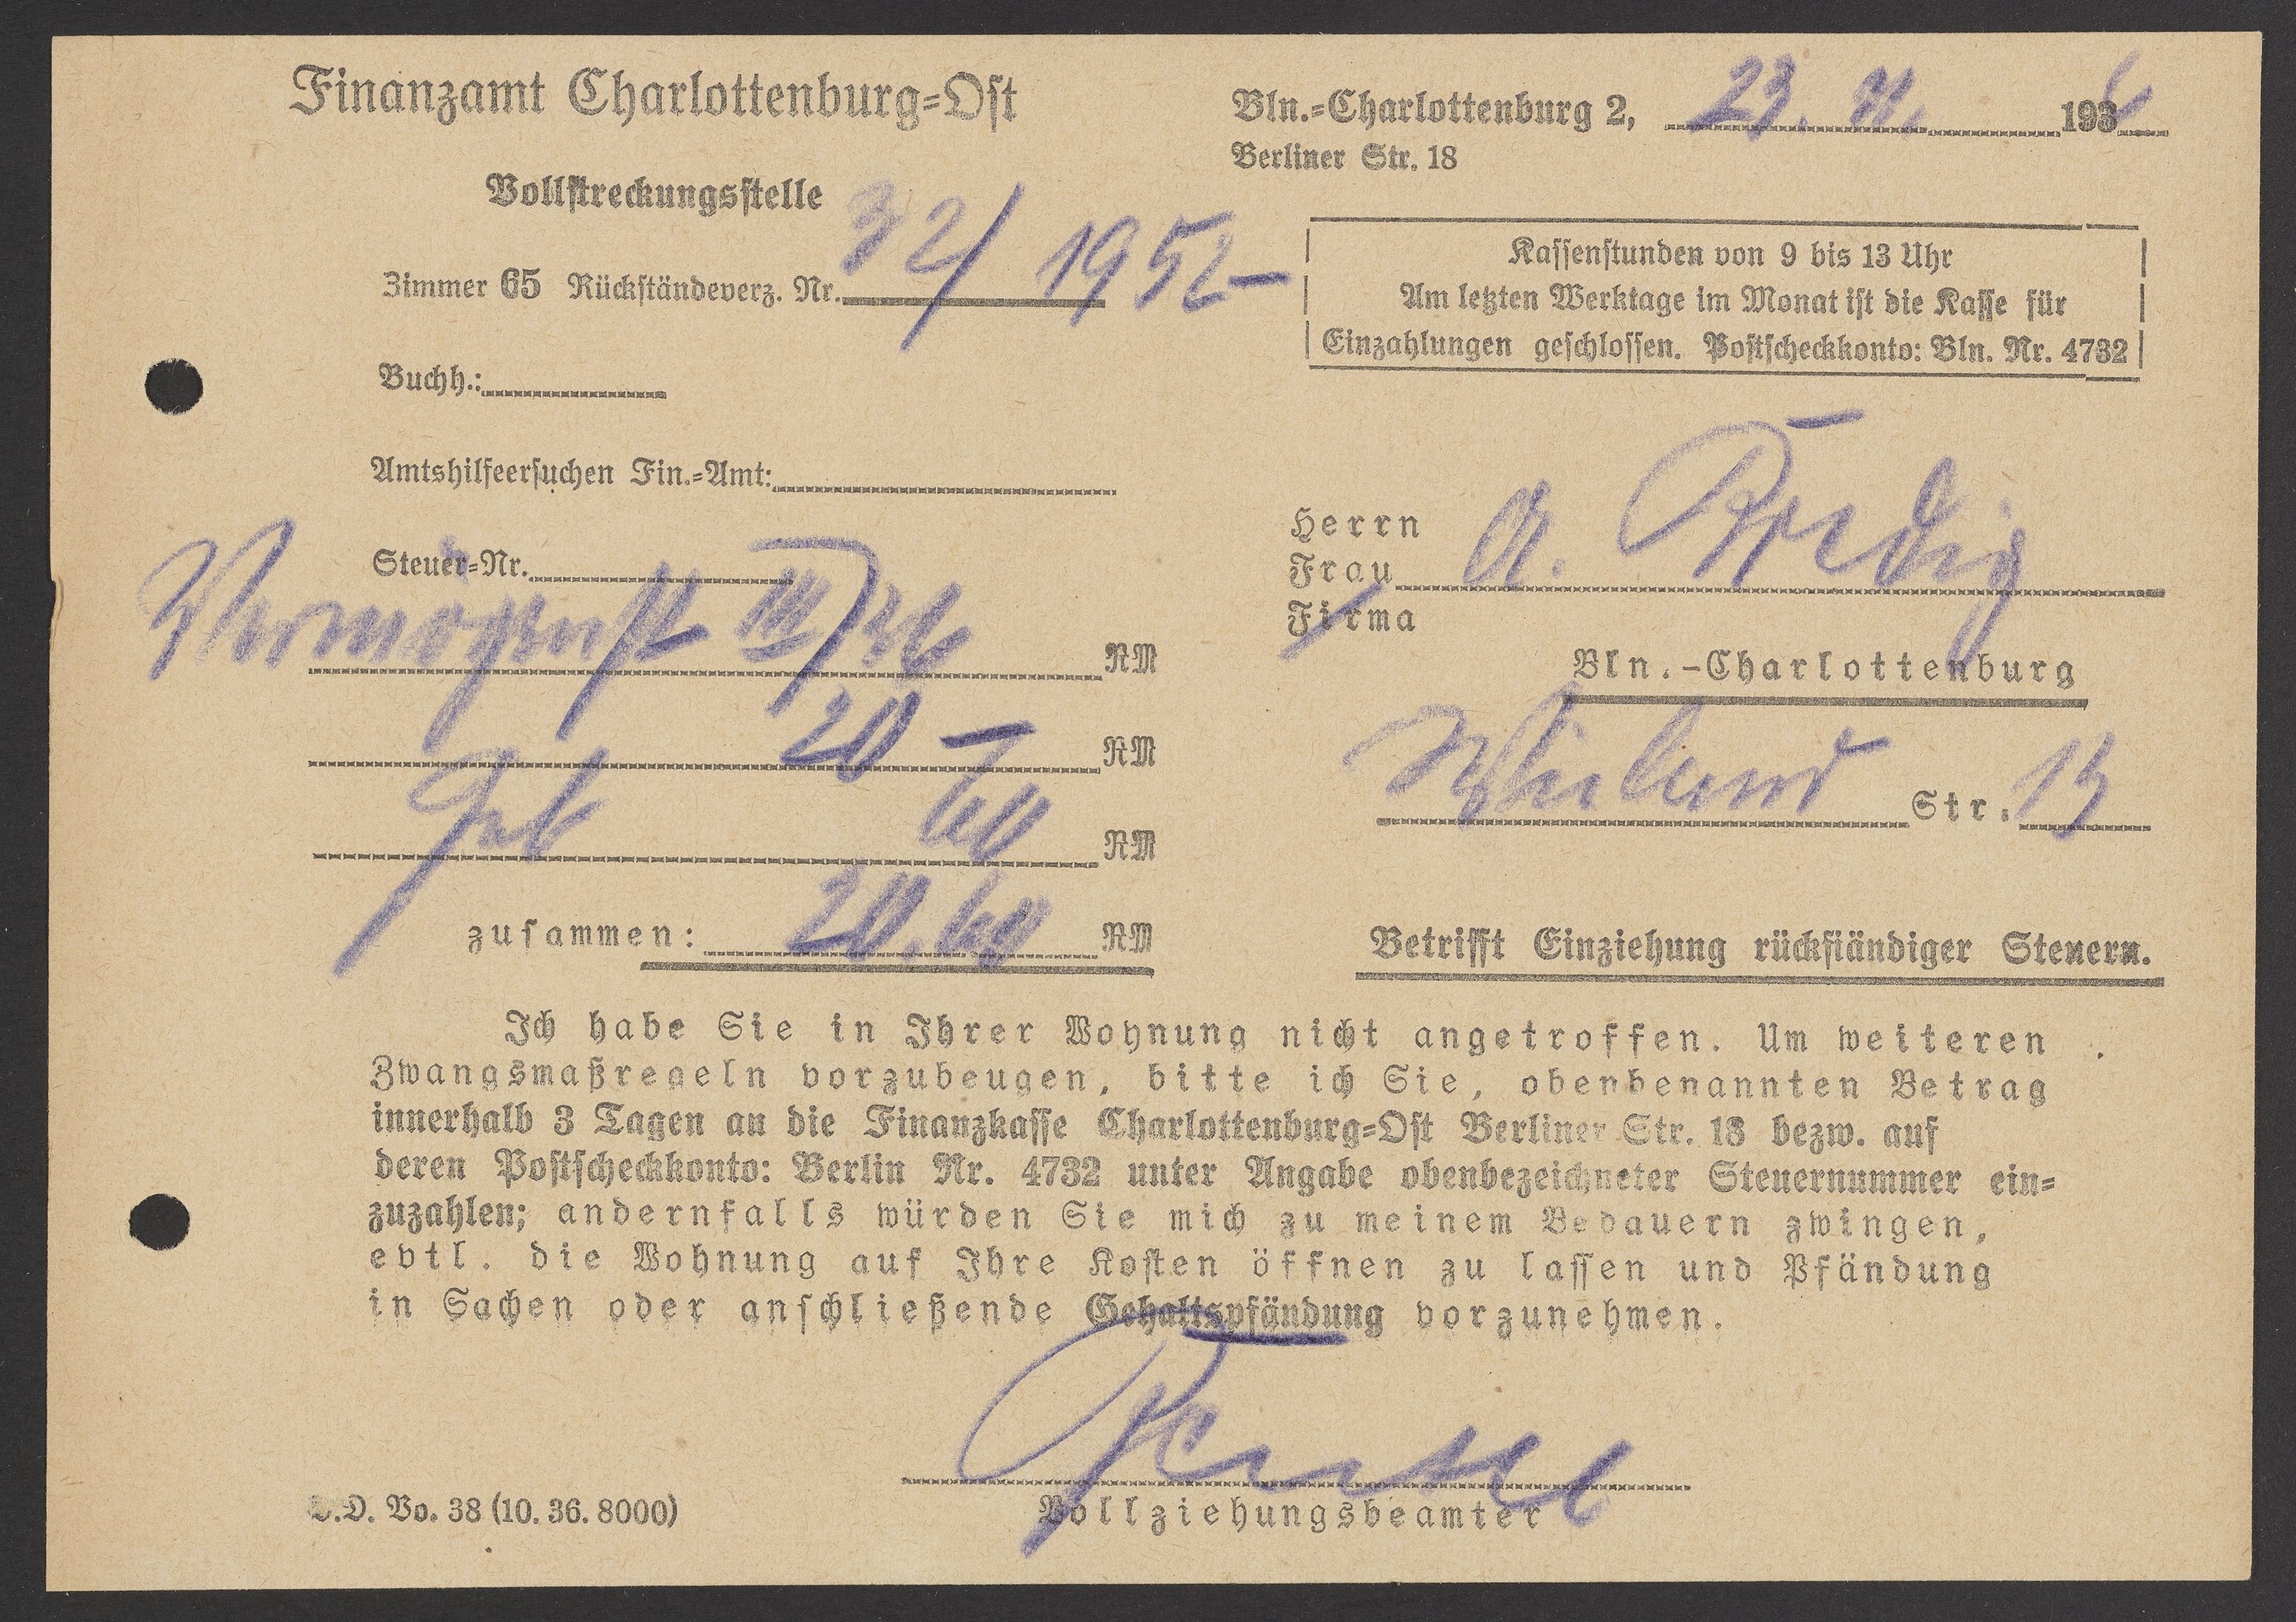 Finanzamt Charlottenburg-Ost
Vollstreckungsstelle
Zimmer 65 Rückständeverz. Nr. 32/1952
Buchh.:
Amtshilfeersuchen Fin.-Amt:
Steuer-Nr.
Vermögenst III/36 RM
20 - RM
Geb 60 RM
zusammen: 20.60 RM
Bln.-Charlottenburg 2, 23. 11. 1936
Berliner Str. 18
Kassenstunden von 9 bis 13 Uhr
Am letzten Werktage im Monat ist die Kasse für
Einzahlungen geschlossen. Postscheckkonto: Bln. Nr. 4732
Herrn
Frau A.
Firma
Bln.-Charlottenburg
Wieland Str. 13
Betrifft Einziehung rückständiger Steuern.
Ich habe Sie in Ihrer Wohnung nicht angetroffen. Um weiteren
Zwangsmaßregeln vorzubeugen, bitte ich Sie, obenbenannten Betrag
innerhalb 3 Tagen an die Finanzkasse Charlottenburg-Ost Berliner Str. 18 bezw. auf
deren Postscheckkonto: Berlin Nr. 4732 unter Angabe obenbezeichneter Steuernummer ein-
zuzahlen; andernfalls würden Sie mich zu meinem Bedauern zwingen,
evtl. die Wohnung auf Ihre Kosten öffnen zu lassen und Pfändung
in Sachen oder anschließende Gehaltspfändung vorzunehmen.
Vollziehungsbeamter
D. Vo. 38 (10. 36. 8000)